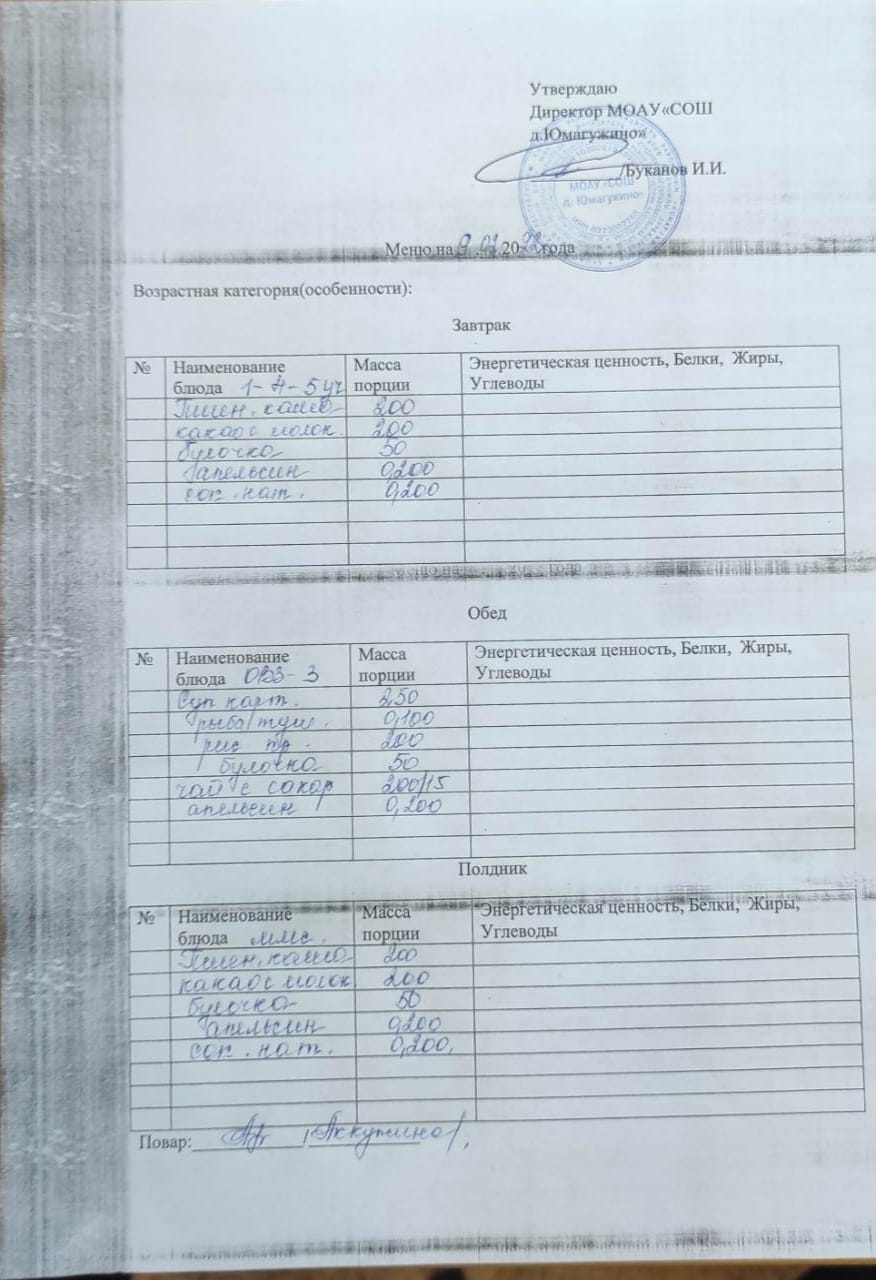 Утверждаю
Директор МОАУ«СОШ
д.Юмагужино»
/Буканов И.И.
МОАУ «СОШ
д. Юмагужино»
Меню на 9 . .20 года
Возрастная категория(особенности):
Завтрак
№ Наименование блюда 1-4-5 уч Масса порции Энергетическая ценность, Белки, Жиры, Углеводы
Пшен. каша 200
какао с молок. 200
булочка 50
апельсин 0,200
сок . нат. 0,200
Обед
№ Наименование блюда ОВЗ-3 Масса порции Энергетическая ценность, Белки, Жиры, Углеводы
Суп карт. 250
рыба туш. 0,100
рис пр. 200
булочка 50
чай с сахар 200/15
апельсин 0,200
Полдник
№ Наименование блюда ммс. Масса порции Энергетическая ценность, Белки, Жиры, Углеводы
Пшен. каша 200
какао с молок 200
булочка 50
апельсин 0,200
сок . нат. 0,200,
Повар: / Аккужина /